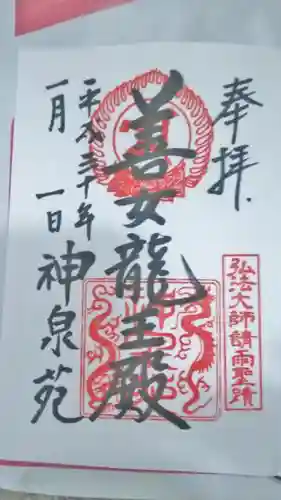 奉拝
弘法大師請雨聖蹟
善女龍王殿
平成三十年
一月 一日
神泉苑